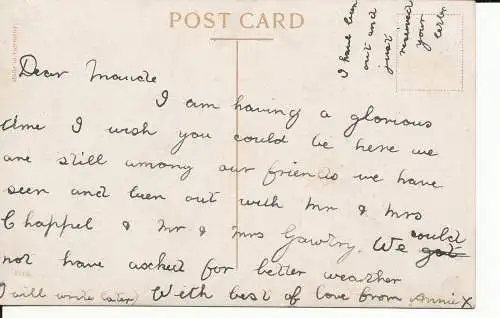 POST CARD
I have been
out and
just
received
your
letter
Dear Maude
I am having a glorious
time I wish you could be here we
are still among our friends we have
seen and been out with Mr & Mrs
Chappel & Mr & Mrs Gawtry. We could
not have asked for better weather
(I will write later) With best of love from Annie X